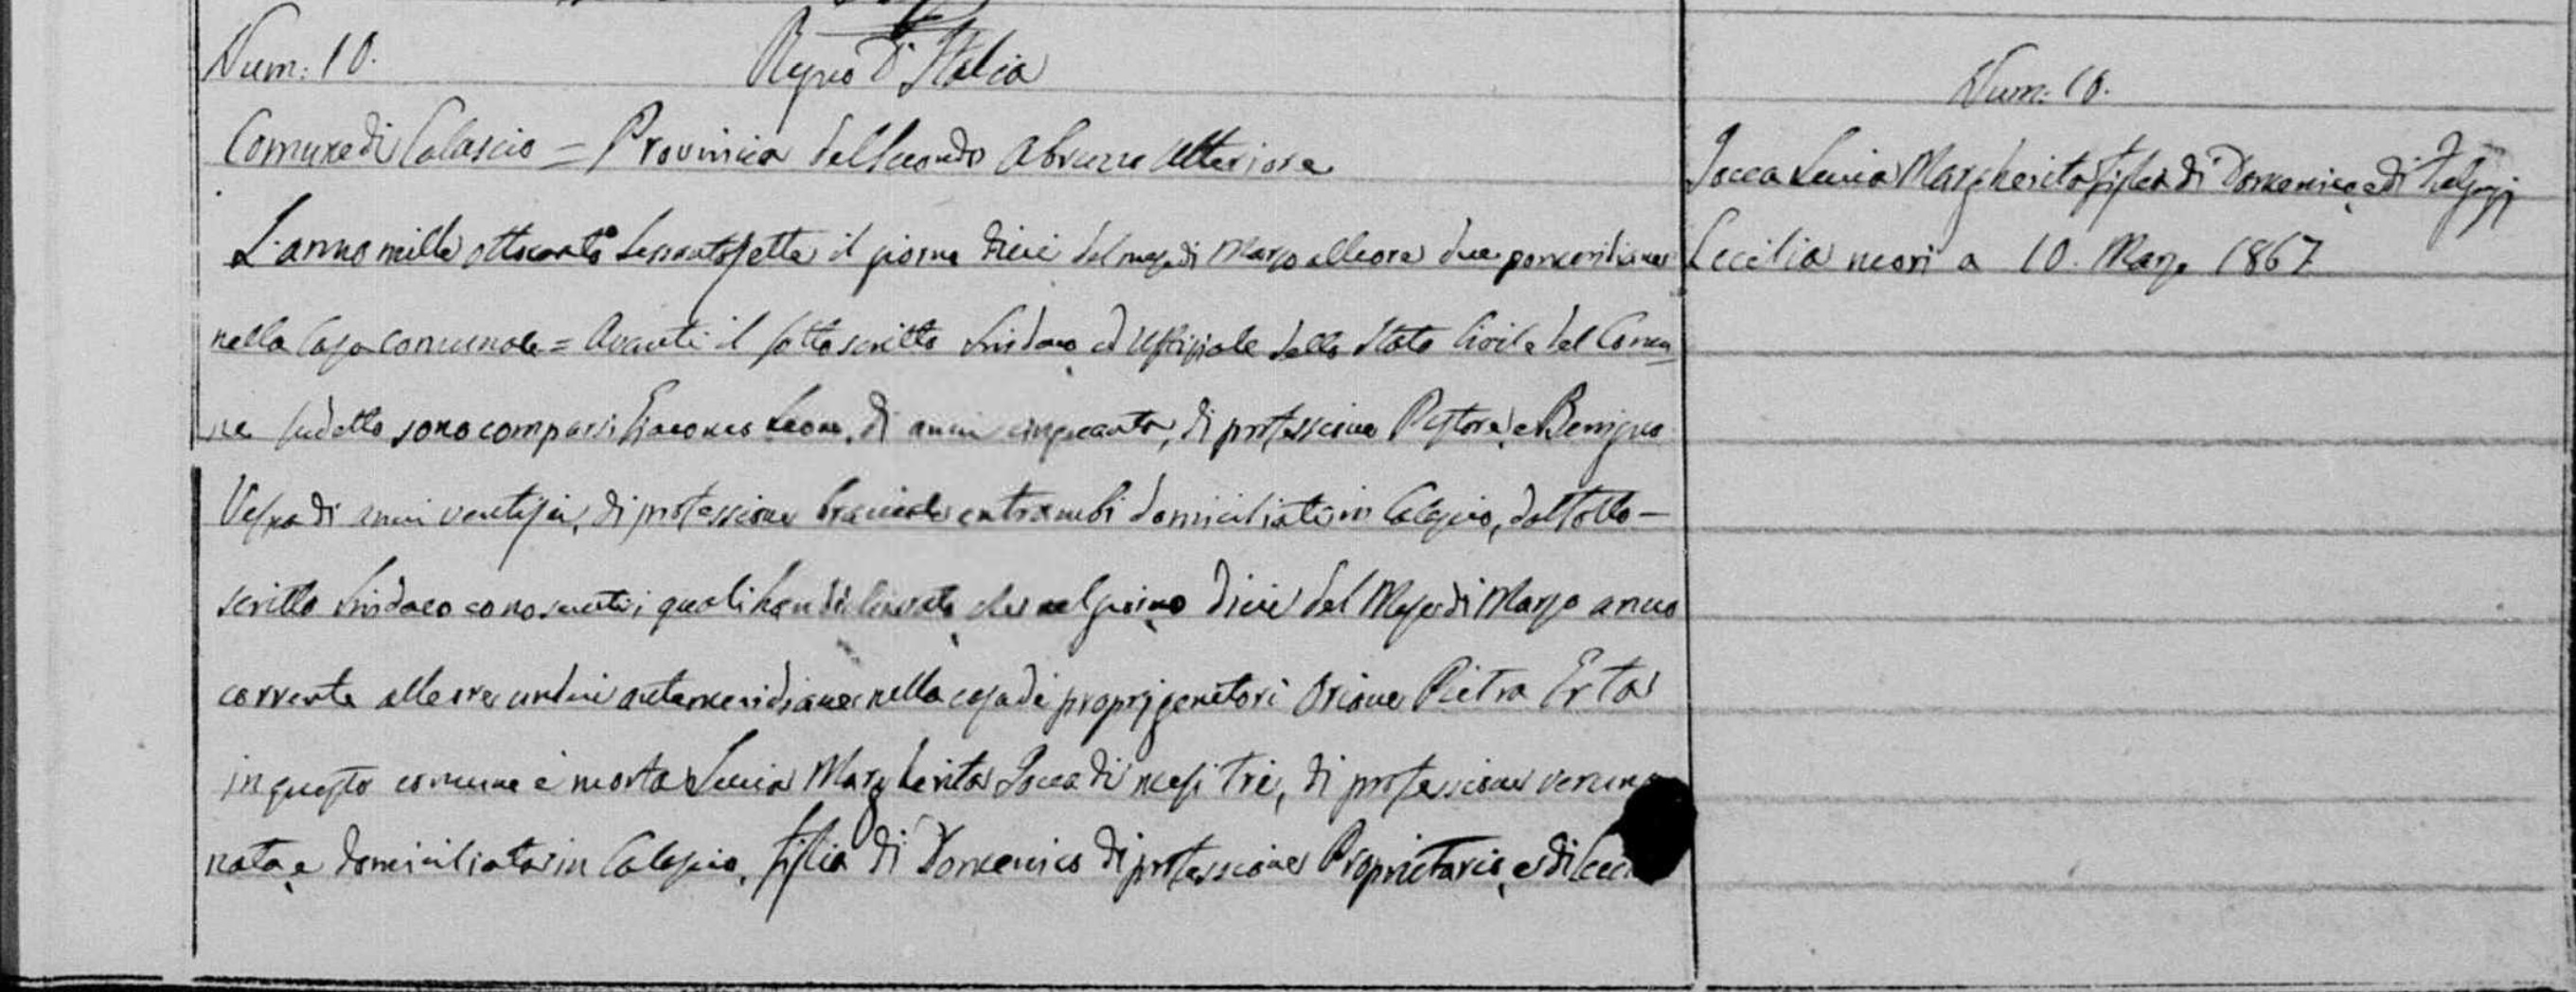 Num: 10.
Regno d'Italia
Comune di Calascio = Provincia del Secondo Abruzzo Ulteriore
L'anno mille ottocento sessantasette il giorno dieci del mese di Marzo alle ore due pomeridiane
nella Casa comunale = Avanti il sottoscritto Sindaco ed Uffiziale dello Stato Civile del Comu
ne sudetto sono comparsi Giacomo Leone, di anni cinquanta, di professione Pastore, e Benigno
di anni ventisei, di professione bracciale entrambi domiciliati in Calascio, dal sotto-
scritto Sindaco conosciuti, i quali han dichiarato che nel giorno dieci del Mese di Marzo anno
corrente alle ore undici antemeridiane nella casa di proprj genitori Rione Pietra Erta
in questo comune è morta Lucia Margherita Jocca di mesi tre, di professione veruna
nata e domiciliata in Calascio, figlia di Domenico di professione Proprietario, e di
Num: 10.
Jocca Lucia Margherita figlia di Domenico e di
Cecilia morì a 10. Marzo 1867